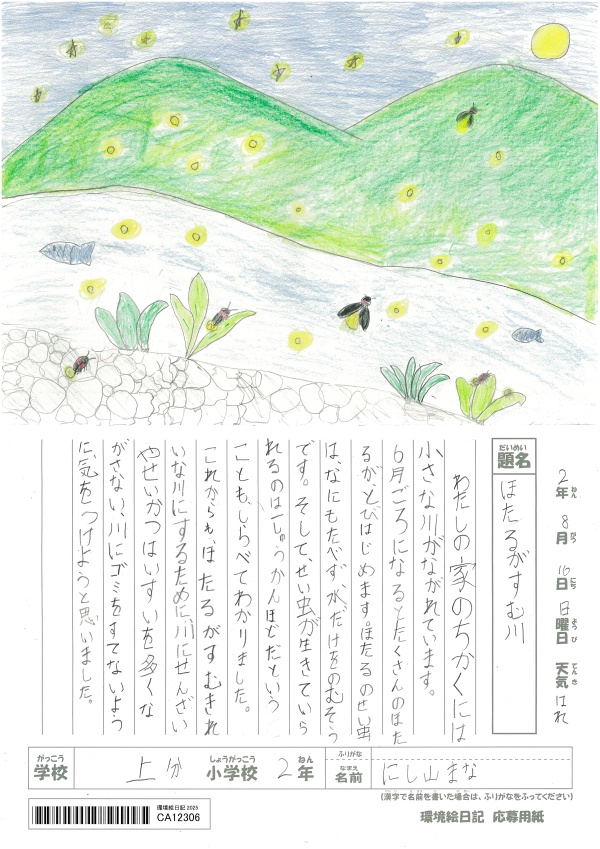 2年 8月 10日 日曜日 天気 はれ
題名 ほたるがすむ川
わたしの家のちかくには
小さな川がながれています。
6月ごろになるとたくさんのほた
るがとびはじめます。ほたるのせい虫
は、なにもたべず、水だけをのむそう
です。そして、せい虫が生きていら
れるのは一しゅうかんほどだという
ことも、しらべてわかりました。
これからも、ほたるがすむきれ
いな川にするために、川にせんざい
やせいかつはいすいを多くな
がさない、川にゴミをすてないよう
に、気をつけようと思いました。
学校 上分 小学校 2年 ふりがな 名前 にし山まな
(漢字で名前を書いた場合は、ふりがなをふってください)
環境絵日記 2025
CA12306
環境絵日記 応募用紙